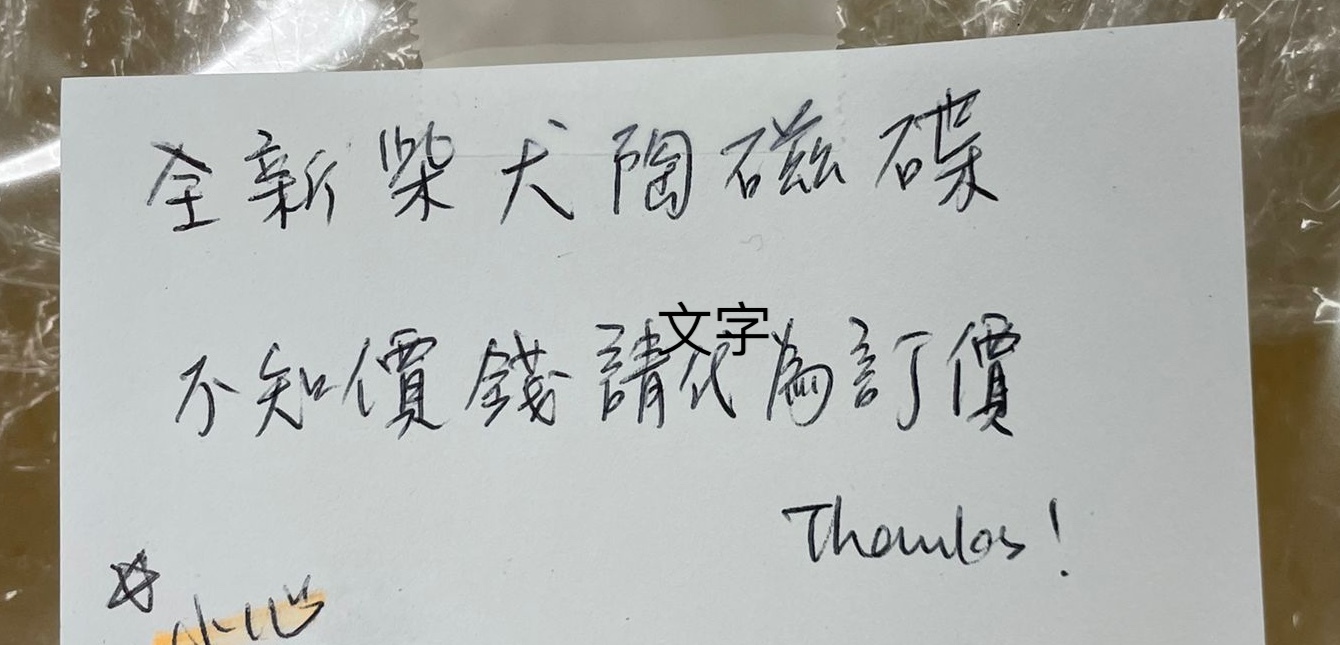 全新柴犬陶磁碟
不知價錢請代為訂價
文字
Thanks!
☆
小心